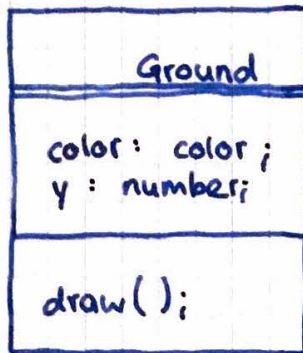 Ground
color: color;
y: number;
draw();